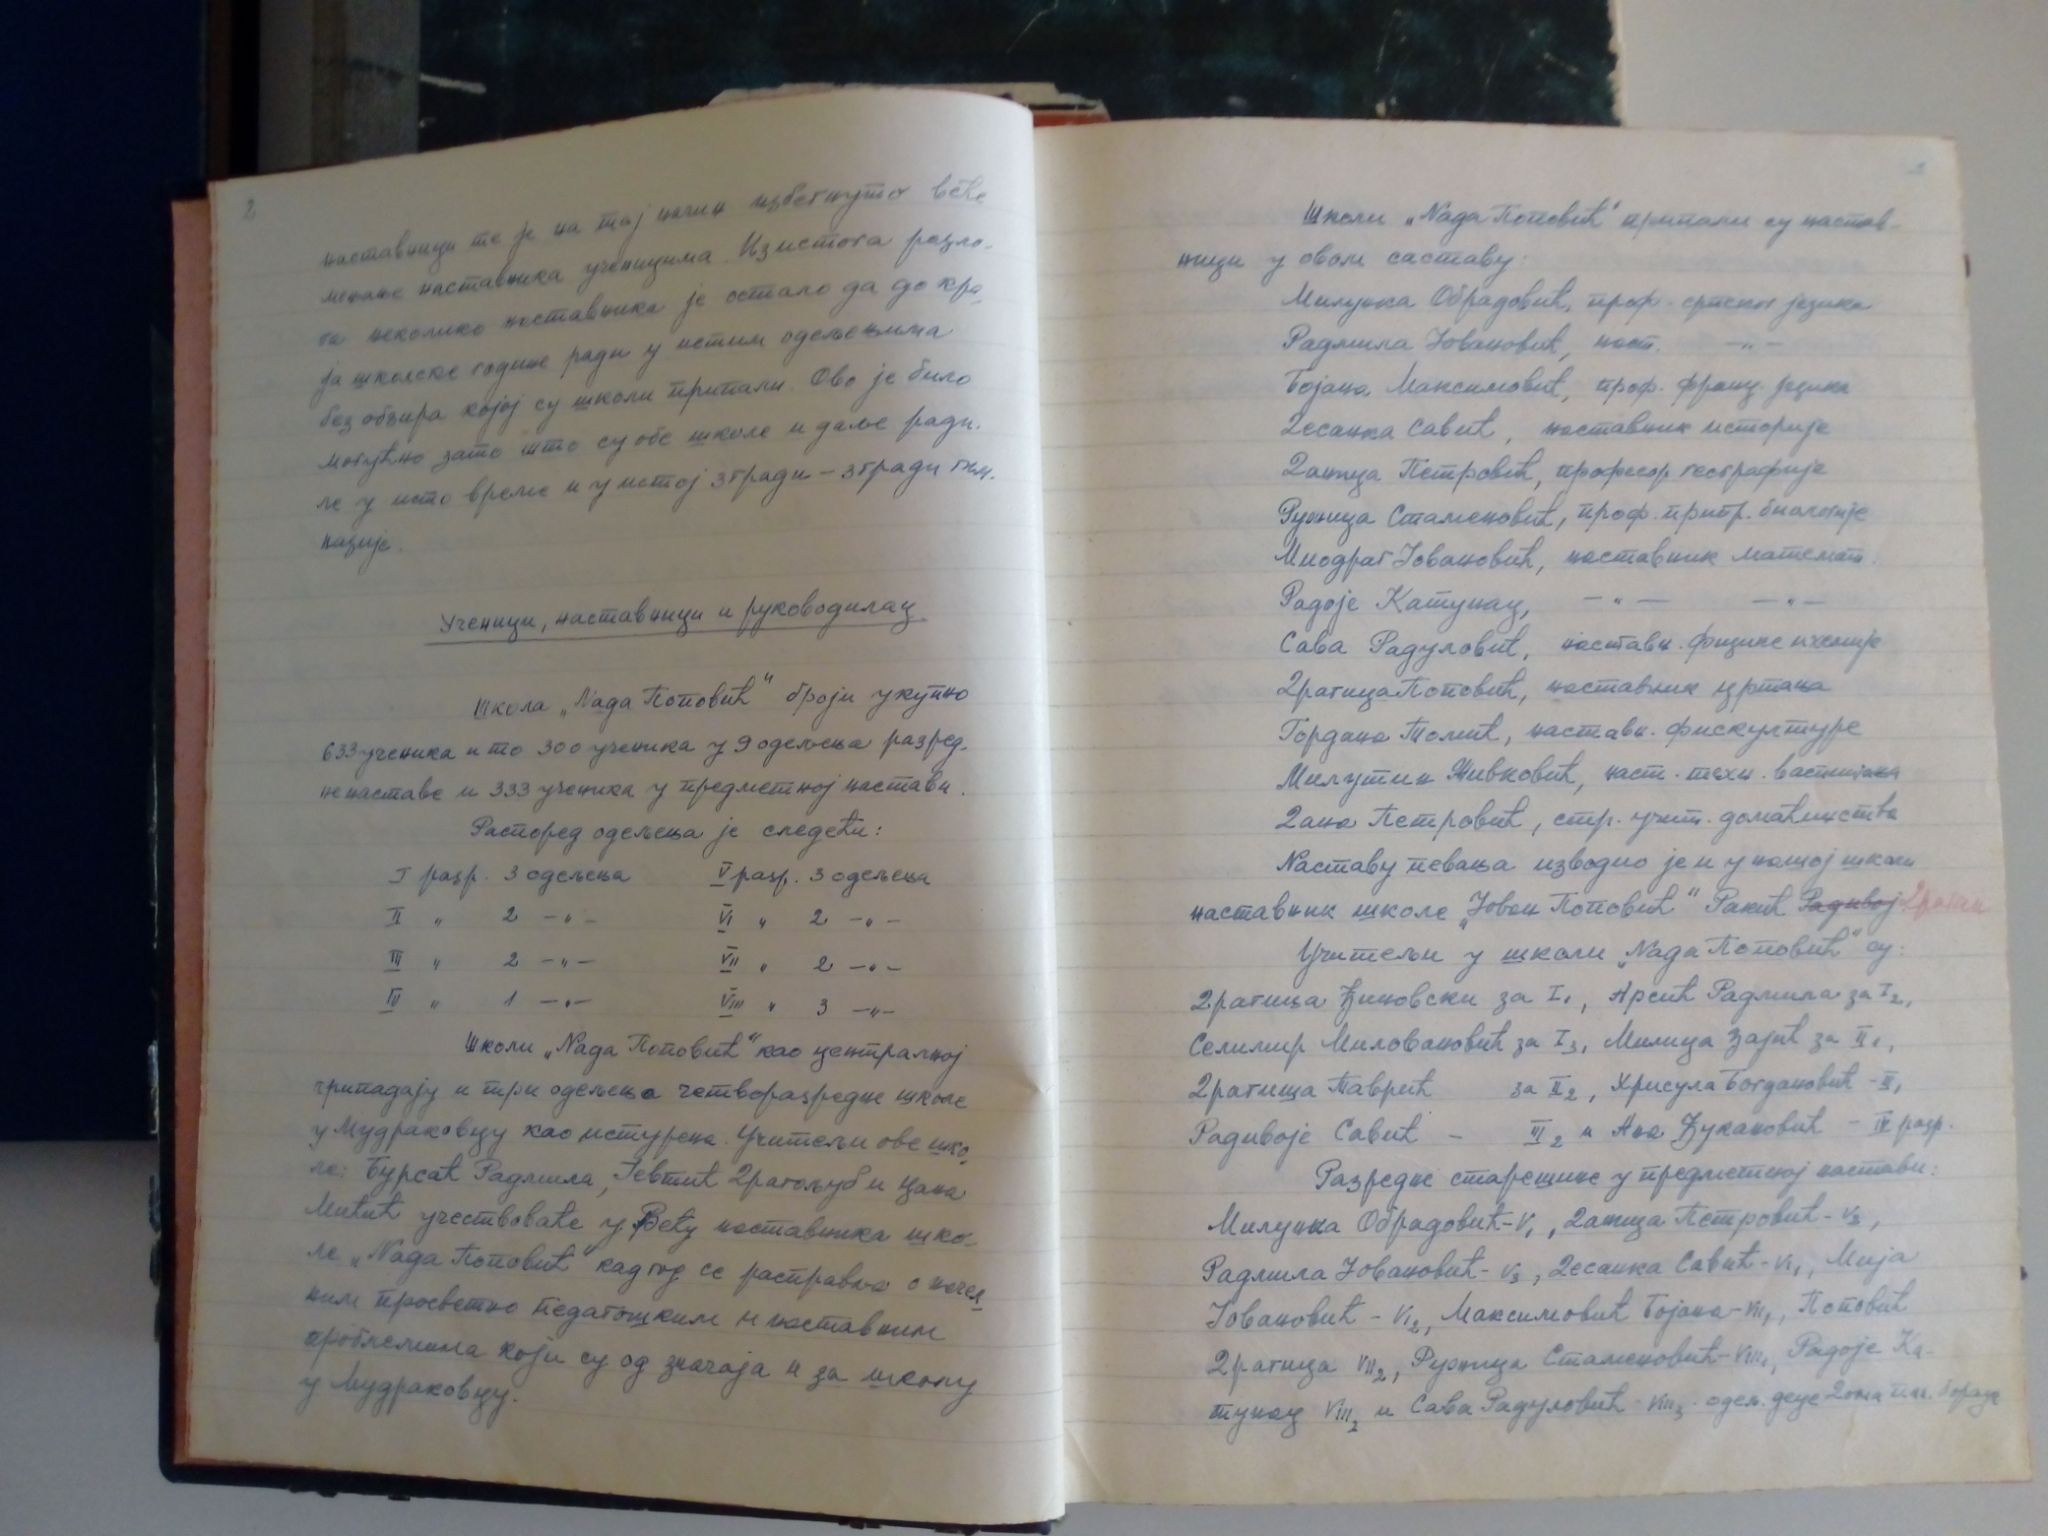 2
наставници те је на тај начин избегнуто веће
мењање наставника ученицима. Из истога разло-
га неколико наставника је остало да до кра-
ја школске године ради у истим одељењима
без обзира којој су школи припали. Ово је било
могућно зато што су обе школе и даље ради-
ле у исто време и у истој згради – згради гим-
назије.
Ученици, наставници и руководилац
Школа „Нада Поповић“ броји укупно
633 ученика и то 300 ученика у 9 одељења разред.
не наставе и 333 ученика у предметној настави.
Распоред одељења је следећи:
I разр. 3 одељења V разр. 3 одељења
II „ 2 –„– VI „ 2 –„–
III „ 2 –„– VII „ 2 –„–
IV „ 1 –„– VIII „ 3 –„–
Школи „Нада Поповић“ као централној
припадају и три одељења четворазредне школе
у Мудраковцу као истурена. Учитељи ове шко-
ле: Бурсаћ Радмила, Јевтић Драгољуб и Цана
Митић учествоваће у Већу наставника шко-
ле „Нада Поповић“ кад год се расправља о начел-
ним просветно педагошким и наставним
проблемима који су од значаја и за школу
у Мудраковцу.
Школи „Нада Поповић“ припали су настав-
ници у овом саставу:
Милунка Обрадовић, проф. српског језика
Радмила Јовановић, наст. –„–
Бојана Максимовић, проф. франц. језика
Десанка Савић, наставник историје
Даница Петровић, професор географије
Ружица Стаменовић, проф. припр. биологије
Миодраг Јовановић, наставник математ.
Радоје Катунац, –„– –„–
Сава Радуловић, наставн. физике и хемије
Драгица Поповић, наставник цртања
Гордана Томић, наставн. фискултуре
Милутин Живковић, наст. техн. васпитања
Дана Петровић, стр. учит. домаћинства
Наставу певања изводио је и у нашој школи
наставник школе „Јован Поповић“ Ракић Радивој Драган
Учитељи у школи „Нада Поповић“ су:
Драгица Ђиновски за I1, Арсић Радмила за I2,
Селимир Миловановић за I3, Милица Зајић за II1,
Драгиша Гаврић за II2, Хрисула Богдановић - III1
Радивоје Савић – III2 и Ана Ђукановић – IV разр.
Разредне старешине у предметној настави:
Милунка Обрадовић - V1, Даница Петровић - V2,
Радмила Јовановић - V3, Десанка Савић - VI1, Мија
Јовановић - VI2, Максимовић Бојана - VII1, Поповић
Драгица VII2, Ружица Стаменовић - VIII1, Радоје Ка-
тунац VIII2 и Сава Радуловић VIII3 - одељ. деце Дома